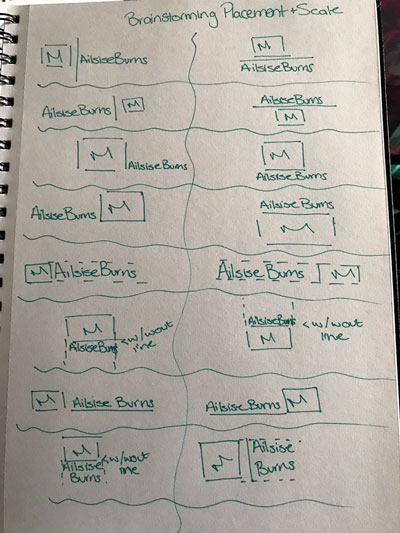 Brainstorming Placement + Scale
M AilsiseBurns
M
AilsiseBurns
AilsiseBurns M
AilsiseBurns
M
M AilsiseBurns
M
AilsiseBurns
AilsiseBurns M
Ailsise Burns
M
M AilsiseBurns
Ailsise Burns M
M
AilsiseBurns
< w/wout
line
AilsiseBurns
M
< w/wout
line
M Ailsise Burns
AilsiseBurns M
M
Ailsise
Burns
< w/wout
line
M
Ailsise
Burns